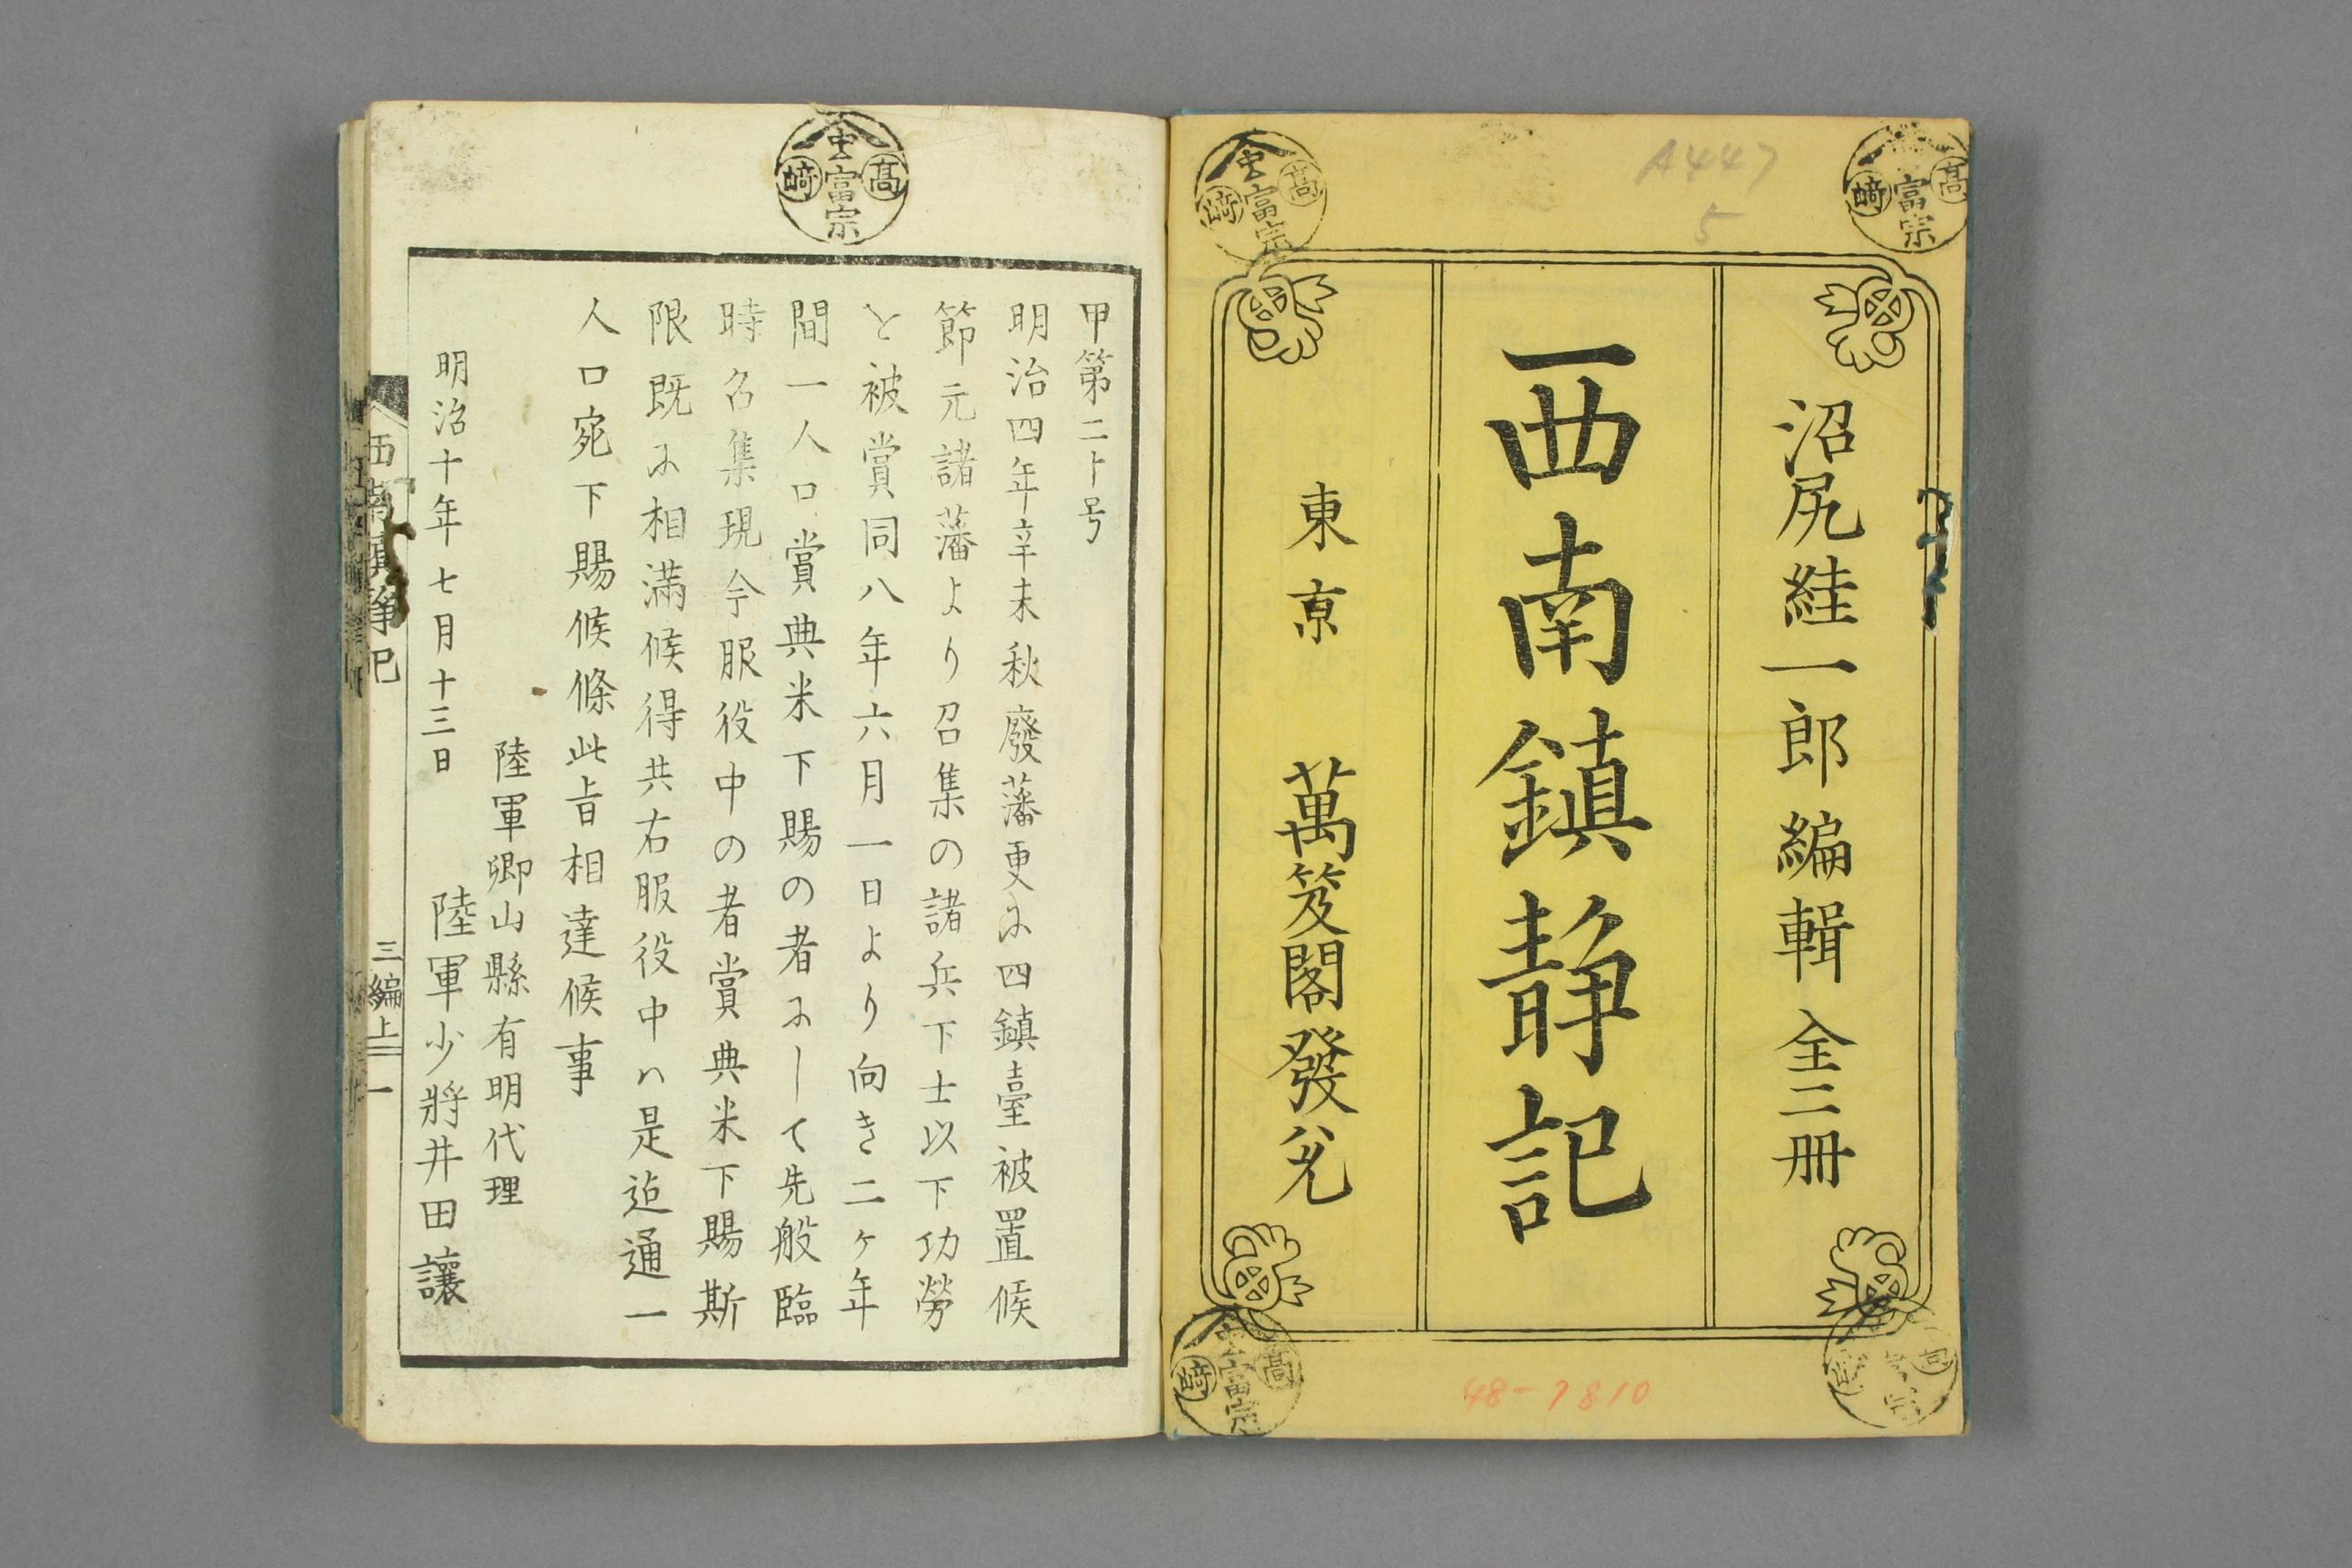 沼尻絓一郎編輯 全二冊
西南鎮静記
東京 萬笈閣發兌
A447
5
48-7810
高崎
富宗
甲第二十号
明治四年辛未秋廢藩更に四鎮臺被置候
節元諸藩より召集の諸兵下士以下功勞
を被賞同八年六月一日より向き二ケ年
間一人口賞典米下賜の者にして先般臨
時召集現今服役中の者賞典米下賜斯
限既に相満候得共右服役中ハ是迠通一
人口宛下賜候條此旨相達候事
陸軍卿山縣有明代理
明治十年七月十三日 陸軍少將井田讓
西南鎮静記 三編上 一